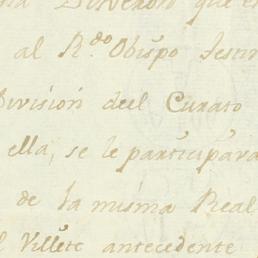 que e
al R.do Obispo
Division del Curato
ella, se le participara
de la misma Real
Villete antecedente